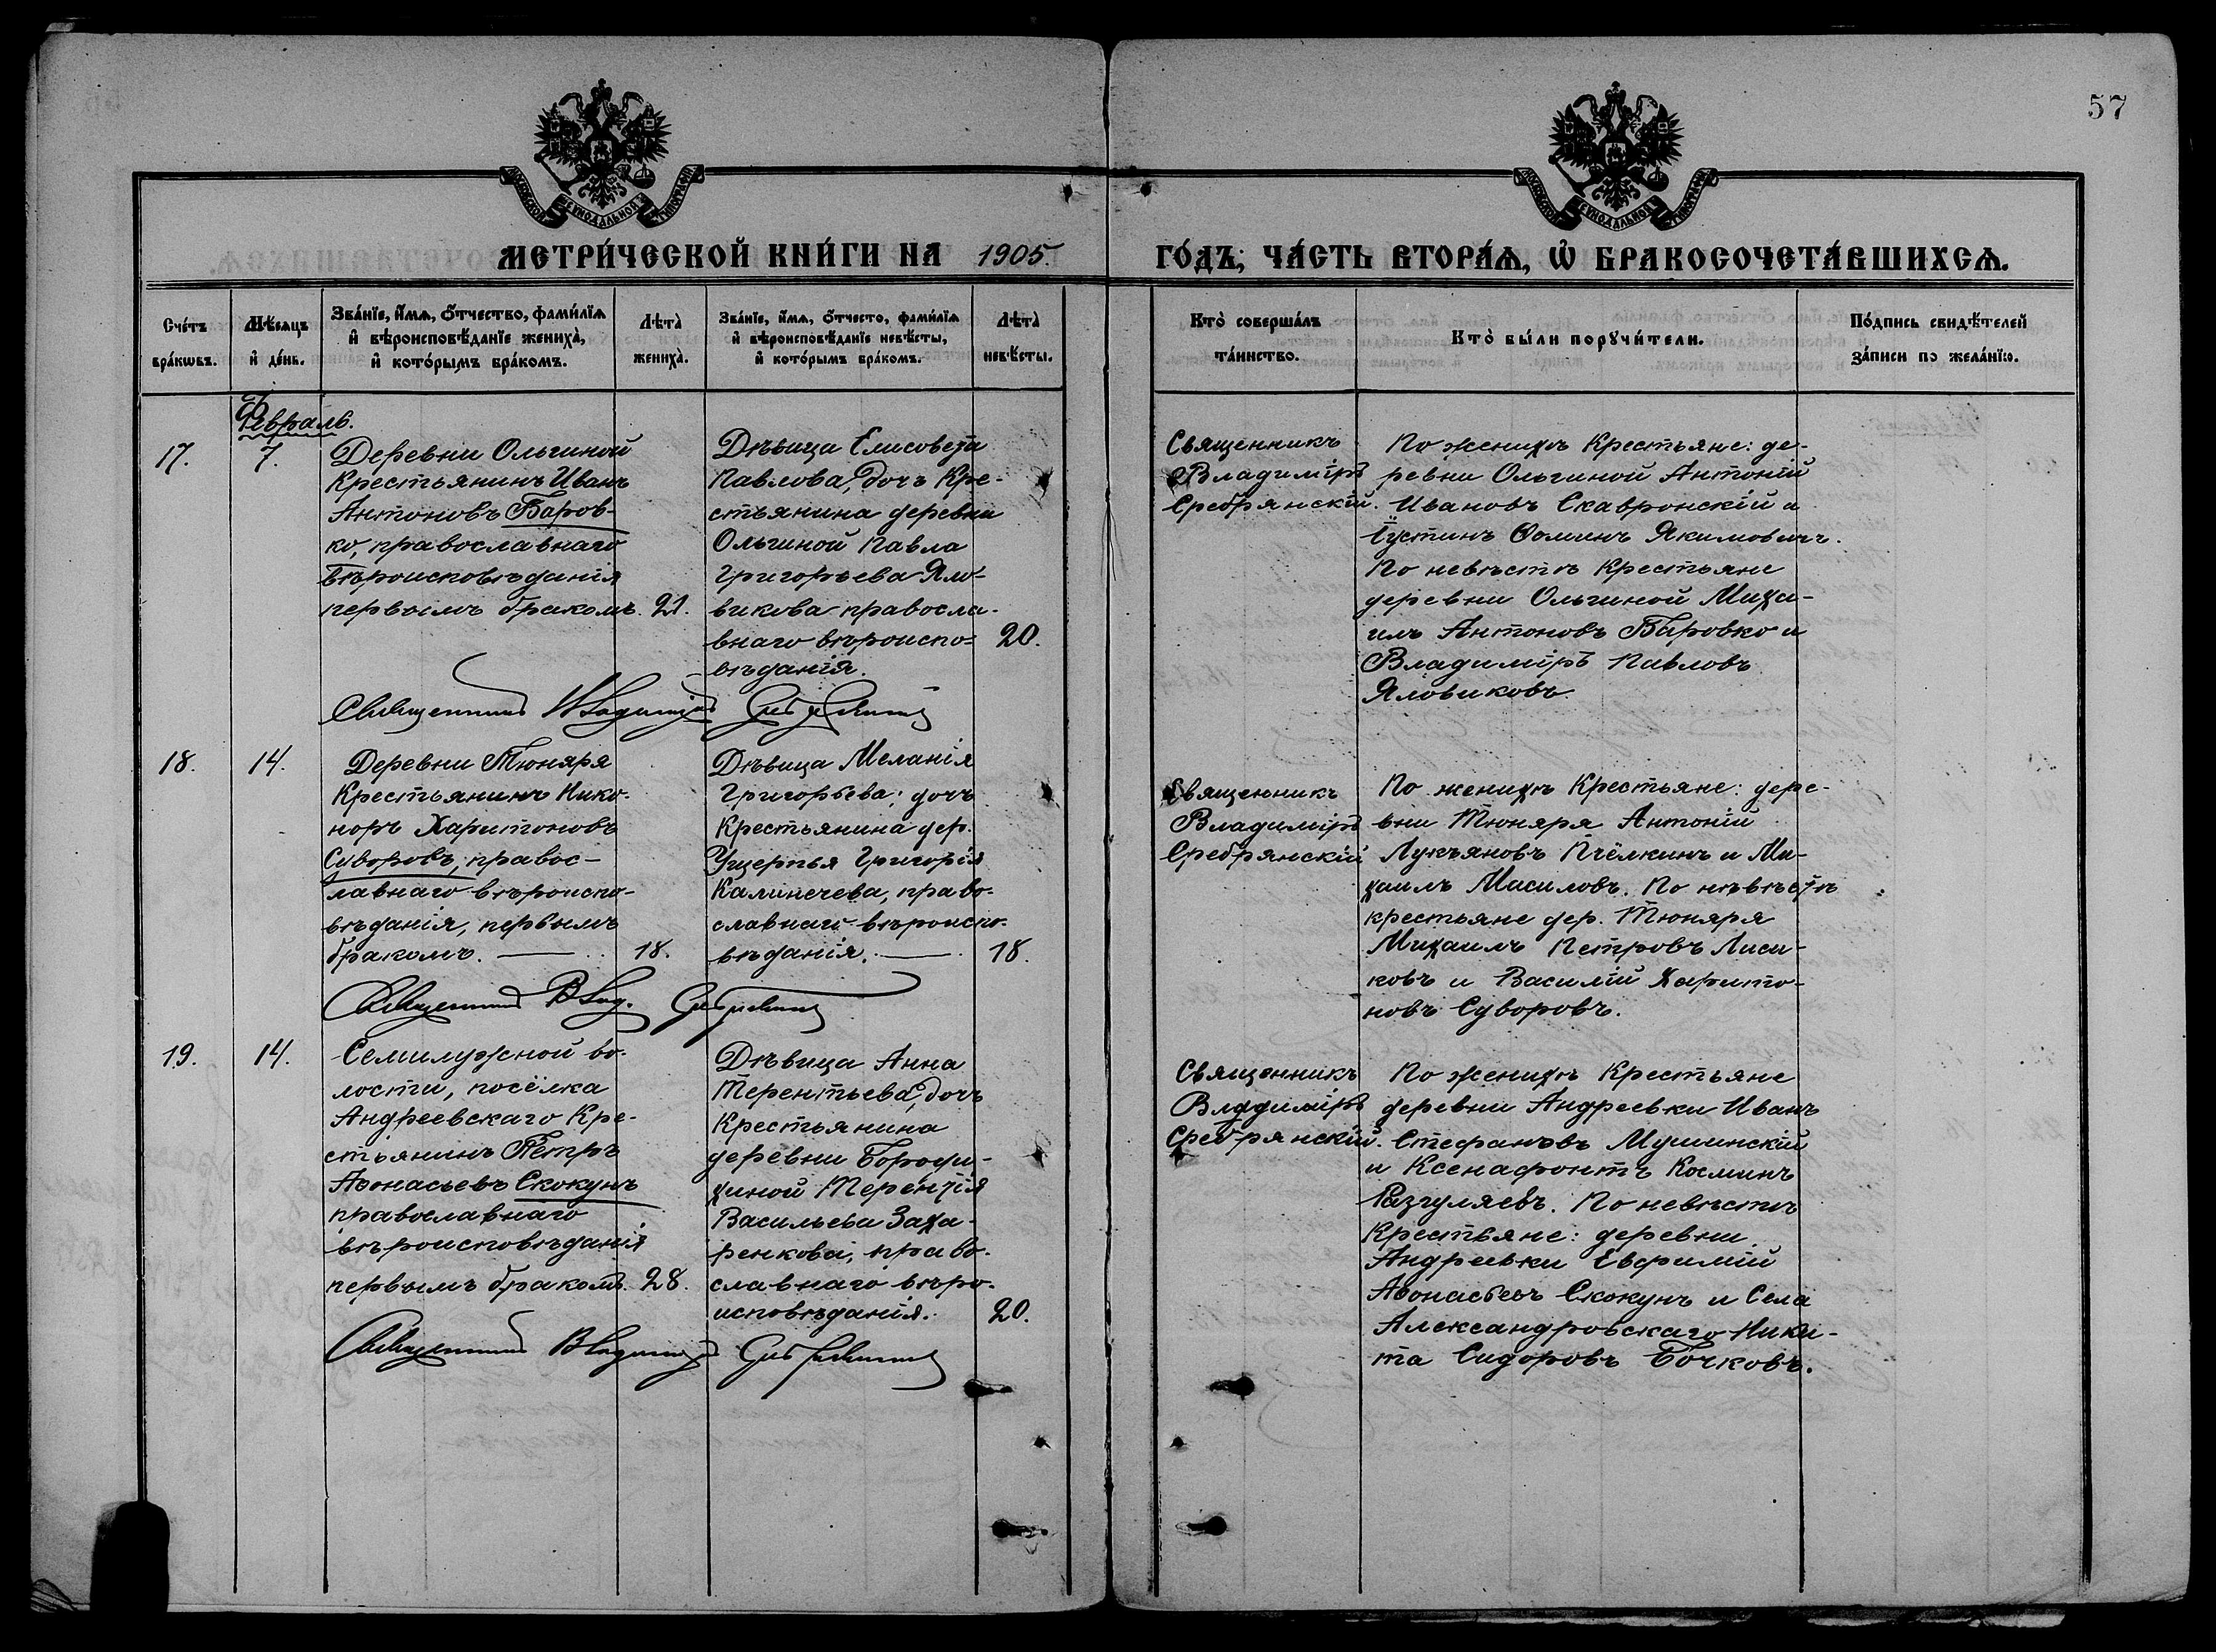 57
МОСКОВСКОЙ СѴНОДАЛЬНОЙ ТИПОГРАФІИ
МОСКОВСКОЙ СѴНОДАЛЬНОЙ ТИПОГРАФІИ
МЕТРИ́ЧЕСКОЙ КНИ́ГИ НА 1905. ГО́ДЪ, ЧА́СТЬ ВТОРА́Ѧ, Ѽ БРАКОСОЧЕТА́ВШИХСѦ.
Сче́тъ
бра́кѡвъ.
Мѣ́сѧцъ
и҆ де́нь.
Зва́нїе, и҆́мѧ, ѻ҆́тчество, фами́лїѧ
и҆ вѣроисповѣ́данїе жениха̀,
и҆ кото́рымъ бра́комъ.
Лѣта̀
жениха̀.
Зва́нїе, и҆́мѧ, ѻ҆́тчесто, фами́лїѧ
и҆ вѣроисповѣ́данїе невѣ́сты,
и҆ кото́рымъ бра́комъ.
Лѣта̀
невѣ́сты.
Кто̀ соверша́лъ
та́инство.
Кто̀ бы́ли порꙋчи́тели.
По́дпись свидѣ́телей
за́писи по жела́нїю.
Февраль.
17.
7.
Деревни Ольгиной
Крестьянинъ Иванъ
Антоновъ Баров-
ко, православнаго
вѣроисповѣданія
первымъ бракомъ.
21.
Дѣвица Елисовета
Павлова, дочь Кре-
стьянина деревни
Ольгиной Павла
Григорьева Яло-
викова правосла-
внаго вѣроиспо-
вѣданія.
20.
Священникъ
Владиміръ
Сребрянскій.
По женихѣ Крестьяне: де-
ревни Ольгиной Антоній
Ивановъ Скавронскій и
Іустинъ Ѳоминъ Якимовичъ.
По невѣстѣ Крестьяне
деревни Ольгиной Миха-
илъ Антоновъ Баровко и
Владиміръ Павловъ
Яловиковъ
Священникъ Владиміръ Сребрянскій
18.
14.
Деревни Тюняря
Крестьянинъ Нико-
норъ Харитоновъ
Суворовъ, правос-
лавнаго вѣроиспо-
вѣданія, первымъ
бракомъ.
18.
Дѣвица Меланія
Григорьева; дочь
Крестьянина дер.
Ущерпья Григорія
Калинечева, право-
славнаго вѣроиспо-
вѣданія.
18.
Священникъ
Владиміръ
Сребрянскій
По женихѣ Крестьяне: дере-
вни Тюняря Антоній
Лукъяновъ Пчёлкинъ и Ми-
хаилъ Масиловъ. По невѣстѣ
крестьяне дер. Тюняря
Михаилъ Петровъ Лиси-
ковъ и Василій Харито-
новъ Суворовъ.
Священникъ Влад. Сребрянскій
19.
14.
Семилужной во-
лости, посёлка
Андреевскаго Кре-
стьянинъ Петръ
Аѳонасьевъ Скокунъ
православнаго
вѣроисповѣданія
первымъ бракомъ.
28.
Дѣвица Анна
Терентьева, дочь
Крестьянина
деревни Бороди-
хиной Терентія
Васильева Заха-
ренкова, право-
славнаго вѣро-
исповѣданія.
20.
Священникъ
Владиміръ
Сребрянскій.
По женихѣ Крестьяне
деревни Андреевки Иванъ
Стефановъ Мушинскій
и Ксенафонтъ Косминъ
Разгуляевъ. По невѣстѣ
Крестьяне: деревни
Андреевки Евфимій
Аѳонасьевъ Скокунъ и Села
Александровскаго Ники-
та Сидоровъ Бочковъ.
Священникъ Владиміръ Сребрянскій